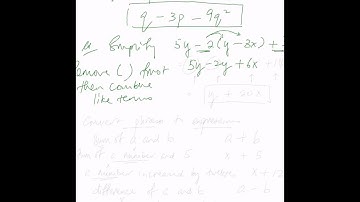 q - 3p - 9q²
Simplify 5y - 2(y - 3x) +
Remove ( ) first 5y - 2y + 6x +
then combine
like terms
y + 20x
Convert phrases to expressions
Sum of a and b a + b
Sum of a number and 5 x + 5
a number increased by twelve x + 12
difference of c and b a - b